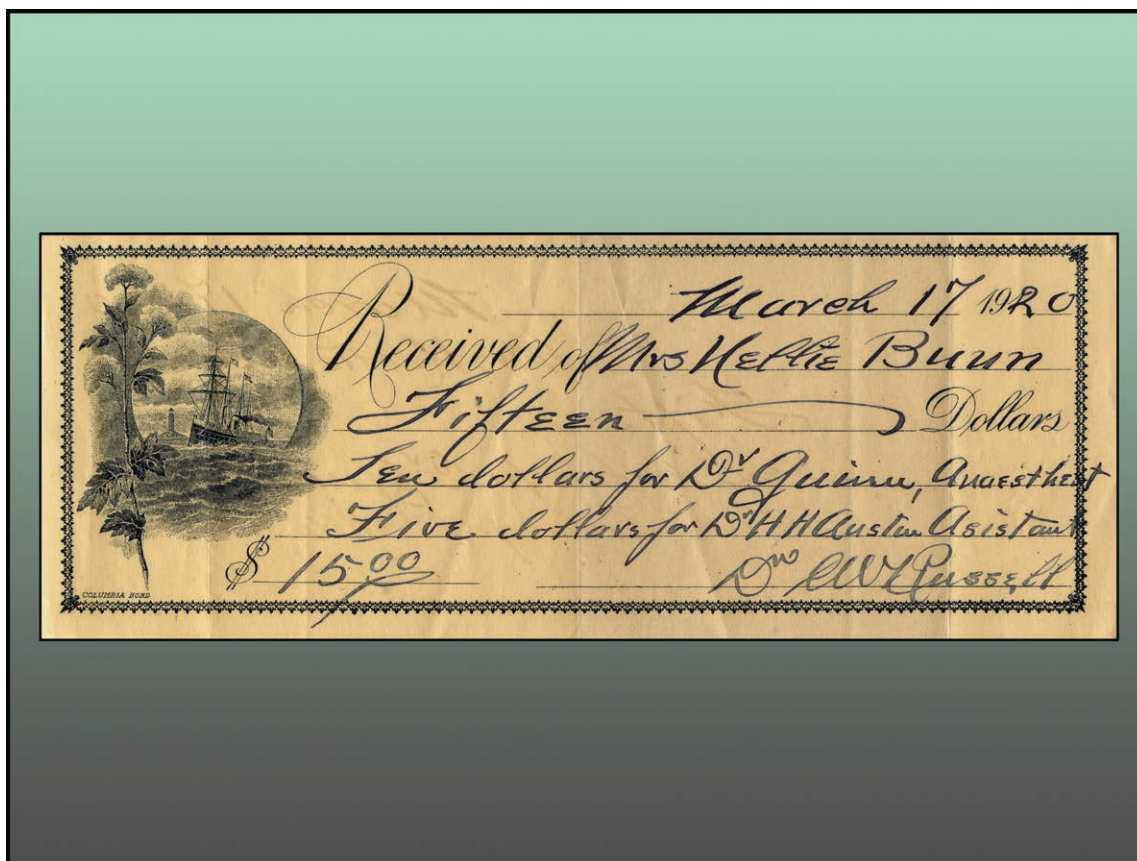 March 17 1920
Received of Mrs Nellie Bunn
Fifteen Dollars
Ten dollars for Dr Quinn, Anaesthest
Five dollars for Dr H H Austin Asistant
$ 15.00 Dr Russell
COLUMBIA BOND